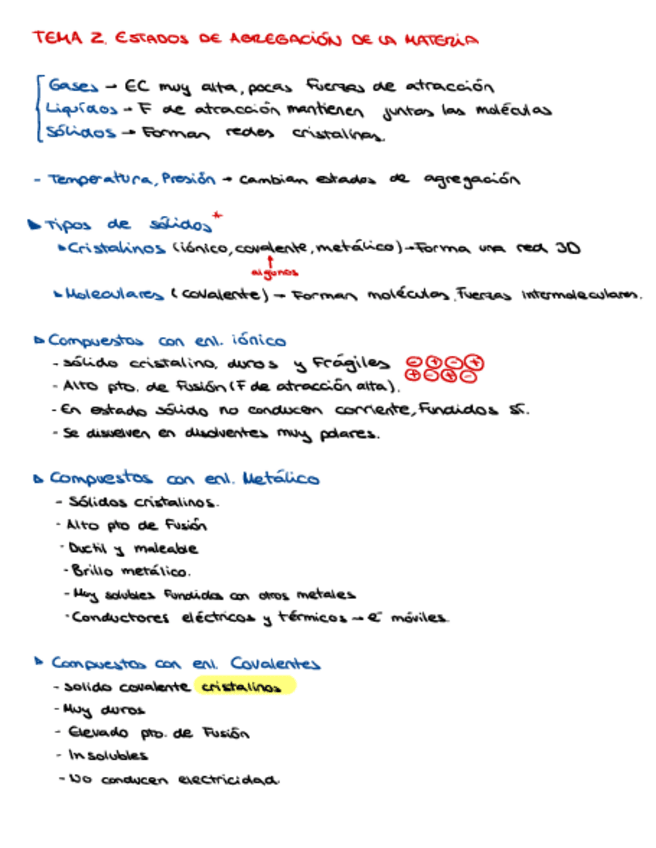 TEMA 2. ESTADOS DE AGREGACIÓN DE LA MATERIA
Gases → EC muy alta, pocas fuerzas de atracción
Líquidos → F de atracción mantienen juntas las moléculas
Sólidos → Forman redes cristalinas.
- Temperatura, Presión → cambian estados de agregación
▶ Tipos de sólidos *
▶ Cristalinos (iónico, covalente, metálico) → Forma una red 3D
↑
algunos
▶ Moleculares (covalente) → Forman moléculas. Fuerzas intermoleculares.
▶ Compuestos con enl. iónico
- sólido cristalino, duros y frágiles ⊖⊕⊖⊕
⊕⊖⊕⊖
- Alto pto. de fusión (F de atracción alta).
- En estado sólido no conducen corriente, fundidos sí.
- Se disuelven en disolventes muy polares.
▶ Compuestos con enl. Metálico
- Sólidos cristalinos.
- Alto pto de fusión
- Ductil y maleable
- Brillo metálico.
- Muy solubles fundidos con otros metales
- Conductores eléctricos y térmicos → e⁻ móviles.
▶ Compuestos con enl. Covalentes
- solido covalente cristalinos
- Muy duros
- Elevado pto. de Fusión
- Insolubles
- No conducen electricidad